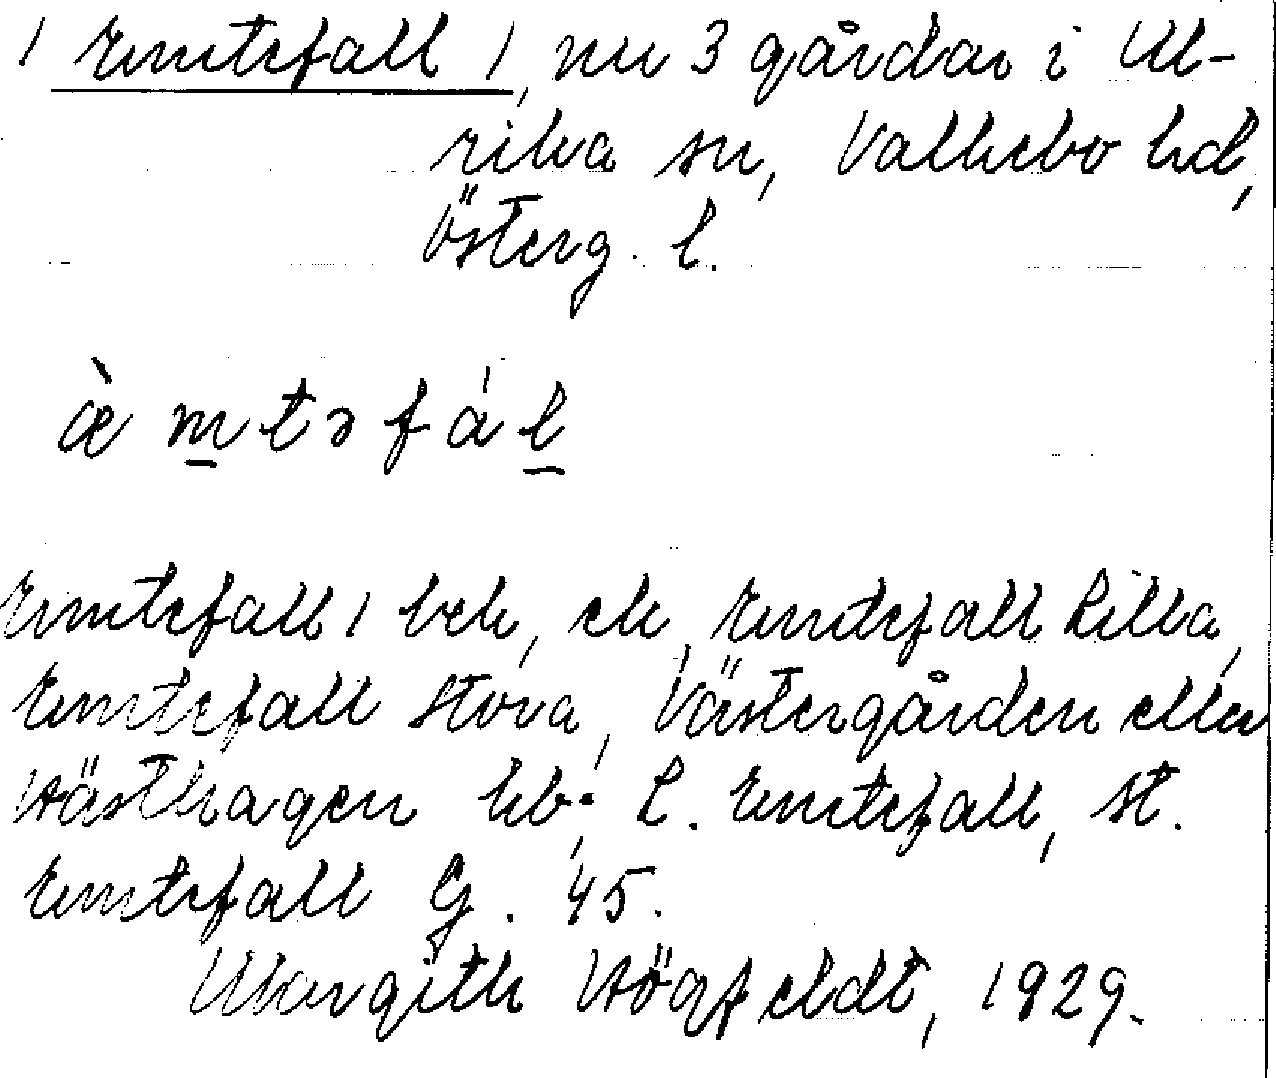 1 Emtefall 1, nu 3 gårdar i Ul-
rika sn, Valkebo hd,
Österg. l.
æ̀ m̲ t ə f á l̲
Emtefall 1 bek, ek, Emtefall Lilla,
Emtefall Stora, Västergården eller
Västhagen kb; L. Emtefall, St.
Emtefall G. 45.
Margith Högfeldt, 1929.